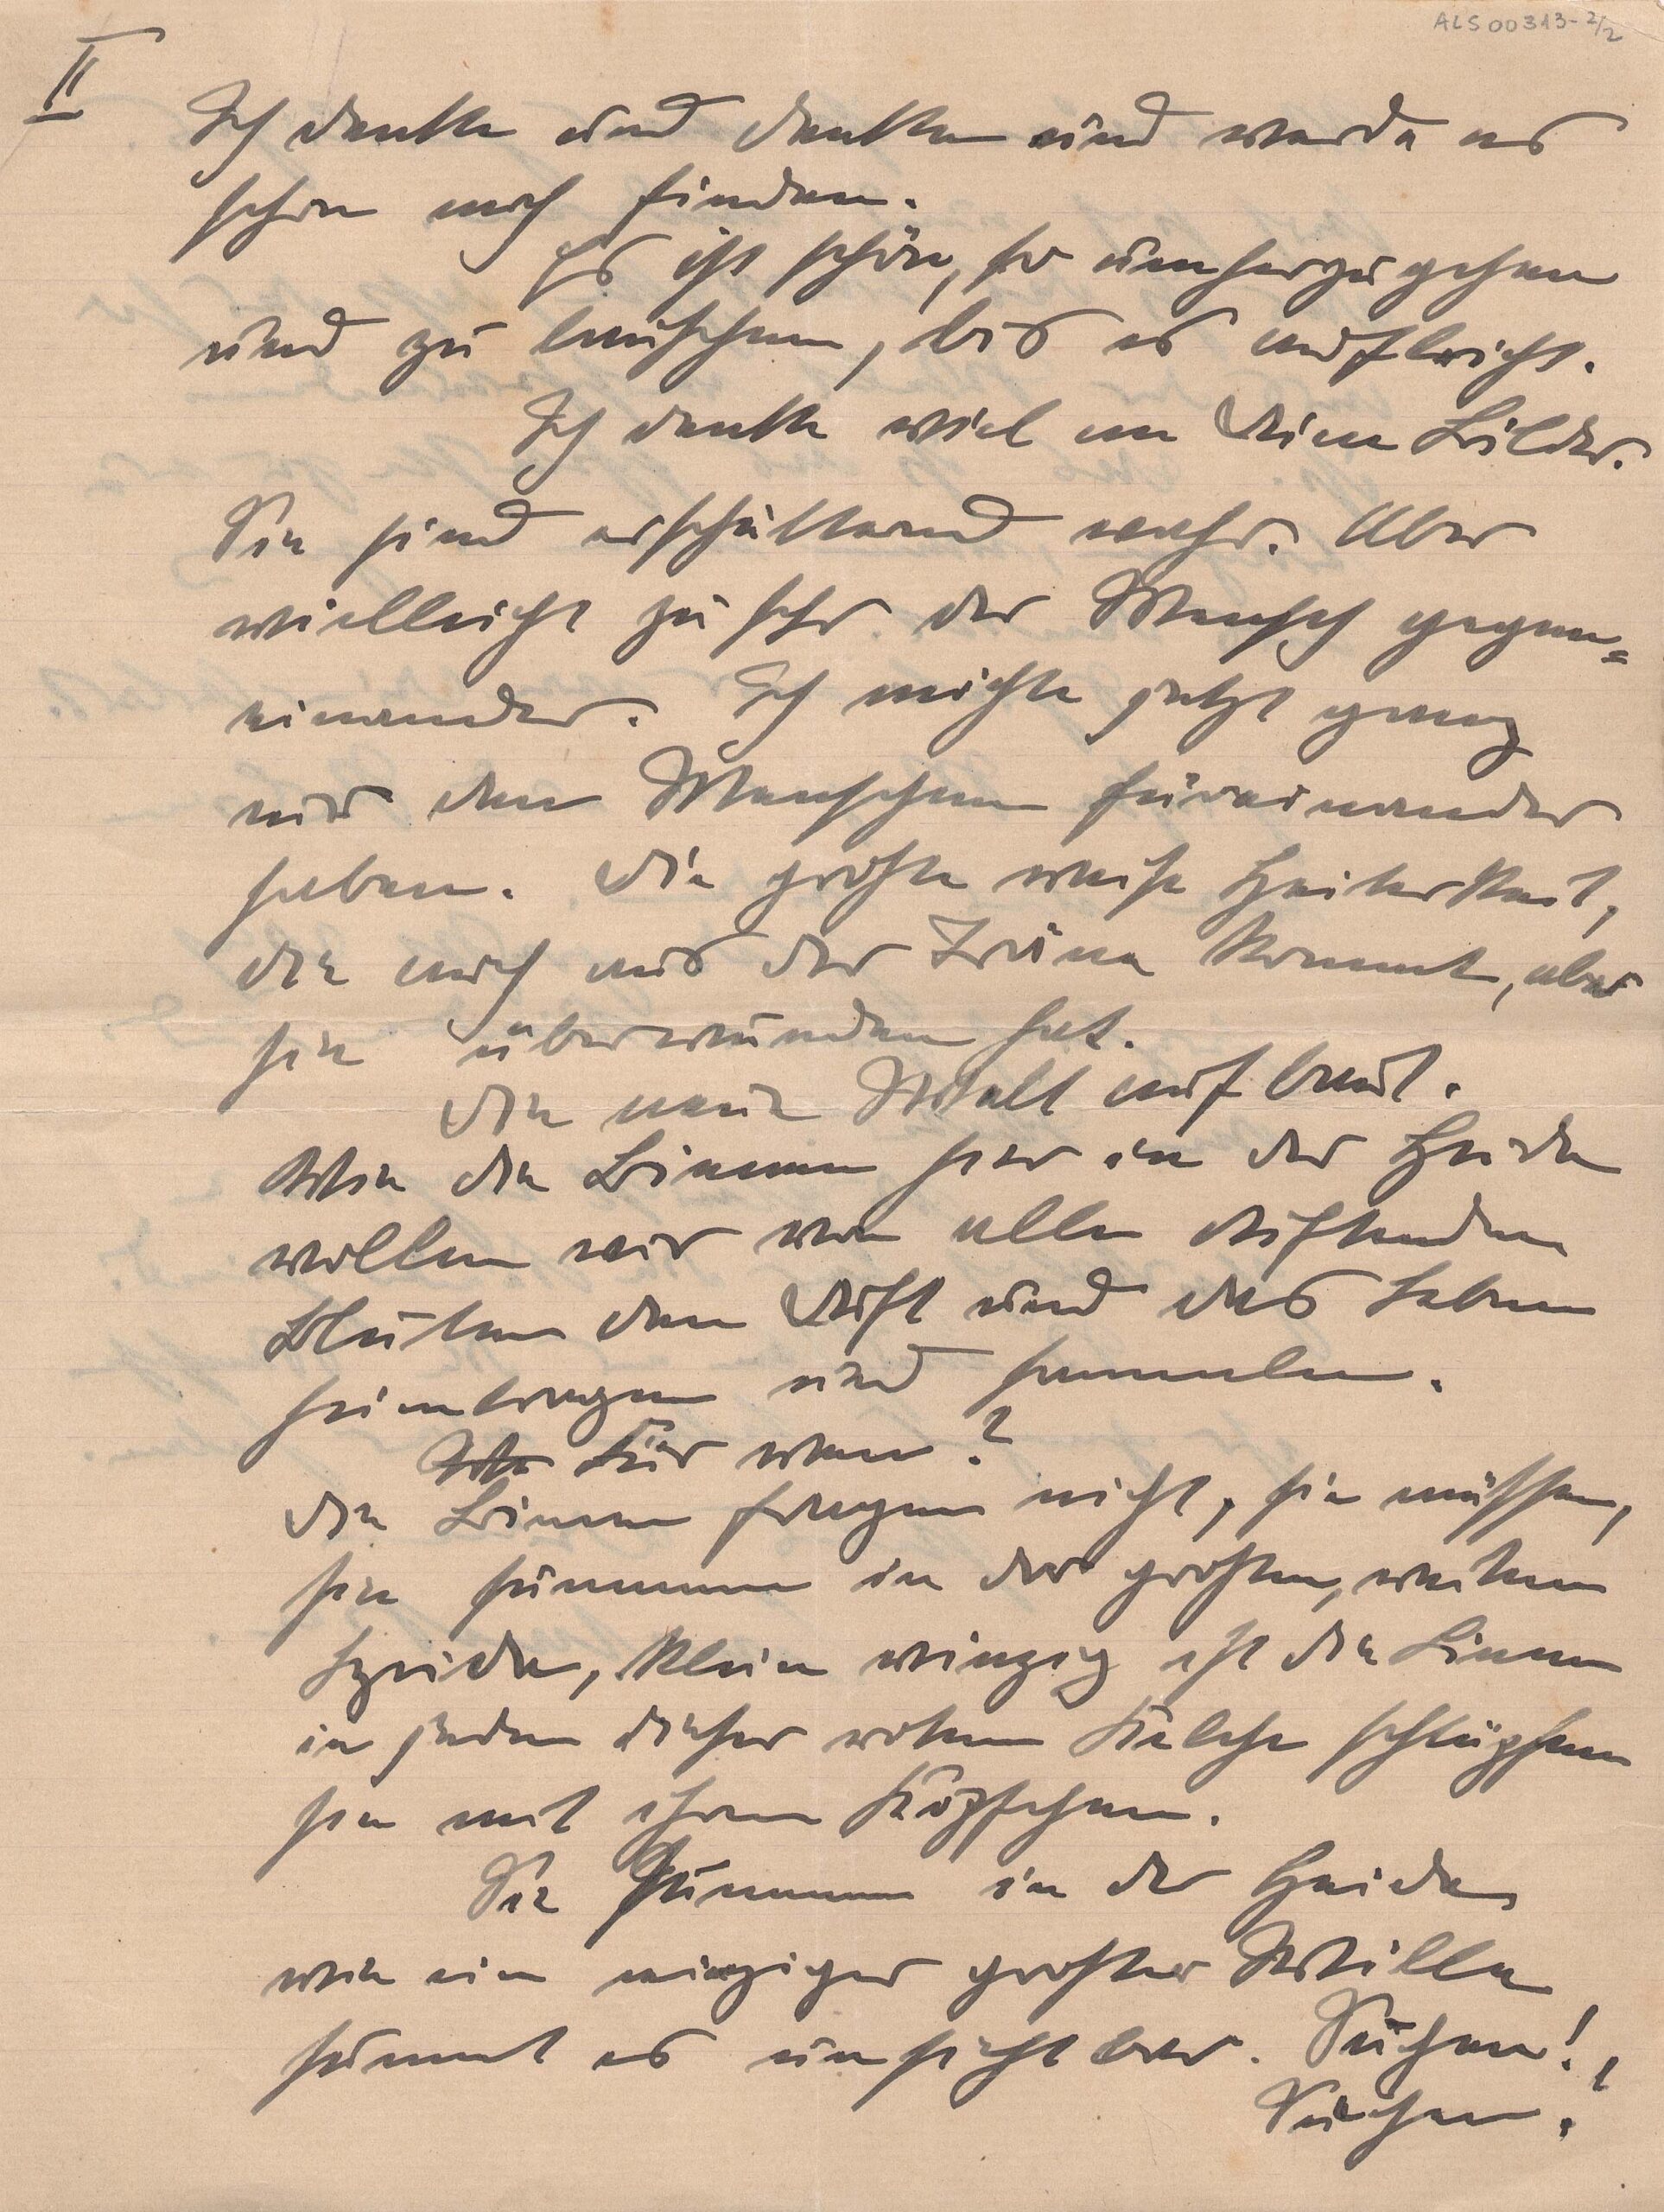 ALS00313-2/2
II
Ich denke und denke und werde es
schon noch finden.
Es ist schön, so umherzugehen
und zu lauschen, bis es aufbricht.
Ich denke viel an Deine Bilder.
Sie sind erschütternd wahr. Aber
vielleicht zu sehr der Mensch gegen=
einander. Ich möchte jetzt ganz
nur den Menschen füreinander
haben. Die große weise Heiterkeit,
die auch aus der Träne kommt, aber
sie überwunden hat.
Die neue Welt aufbaut.
Wie die Bienen hier in der Heide
wollen wir von allen duftenden
Blüten den Duft und das Leben
heimtragen und sammeln.
Für wen?
Die Bienen fragen nicht, sie müssen,
sie summen in der großen, weiten
Heide, klein winzig ist die Biene
in jeden dieser roten Kelche schlüpfen
sie mit ihren Köpfchen.
Sie summen in der Heide,
wie ein einziger großer Wille
summt es unsichtbar. Suchen!,
Suchen!